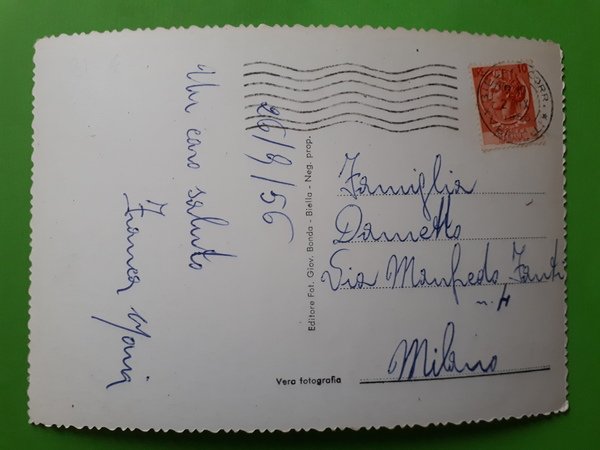 Un caro saluto
Franca Maria
26/9/56
Editore Fot. Giov. Bonda - Biella - Neg. prop.
Famiglia
Dametto
Via Manfredo Fanti
n. 4
Milano
Vera fotografia
10